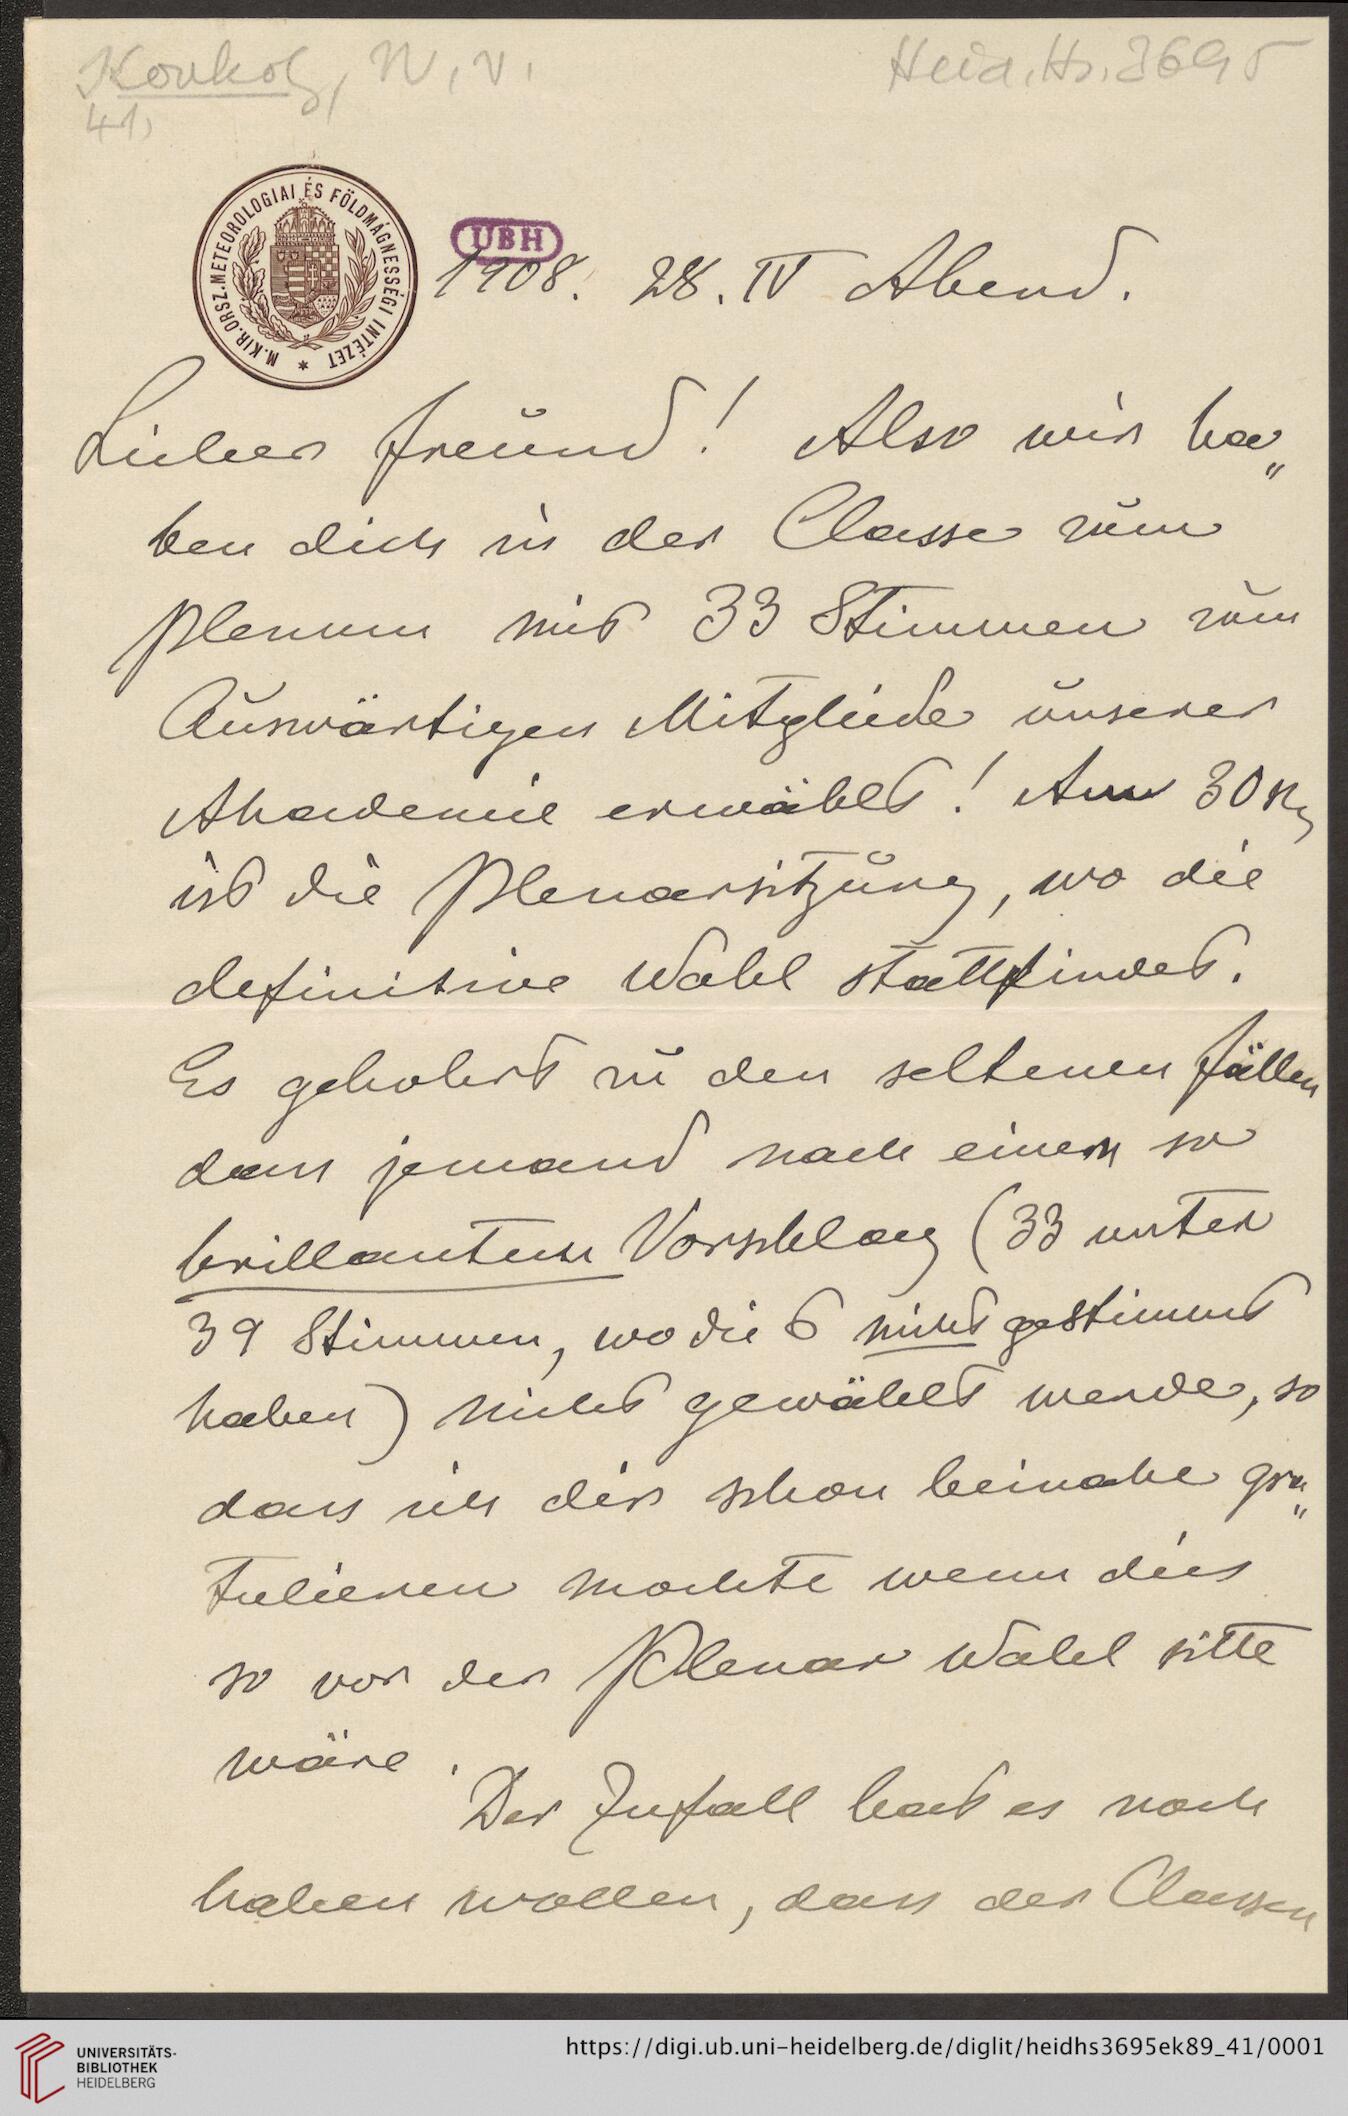 Konkoly, N. v.
Heid. Hs. 3695
41,
M. KIR. ORSZ. METEOROLOGIAI ÉS FÖLDMÁGNESSÉGI INTÉZET *
UBH
1908. 28. IV Abend.
Lieber Freund! Also wir ha„
ben dich in der Classe zum
Plenum mit 33 Stimmen zum
Auswärtigen Mitgliede unserer
Akademie erwählt! Am 30
ist die Plenarsitzung, wo die
definitive Wahl stattfindet.
Es gehohrt zu den seltenen Fällen
dass jemand nach einem so
brillanten Vorschlag (33 unter
39 Stimmen, wo die 6 nicht gestimmt
haben) nicht gewählt werde, so
dass ich dir schon beinahe gra„
tulieren mochte wenn dies
so vor der Plenar Wahl sitte
wäre.
Der Zufall hat es noch
haben wollen, dass der Classen
UNIVERSITÄTS-
BIBLIOTHEK
HEIDELBERG
https://digi.ub.uni-heidelberg.de/diglit/heidhs3695ek89_41/0001